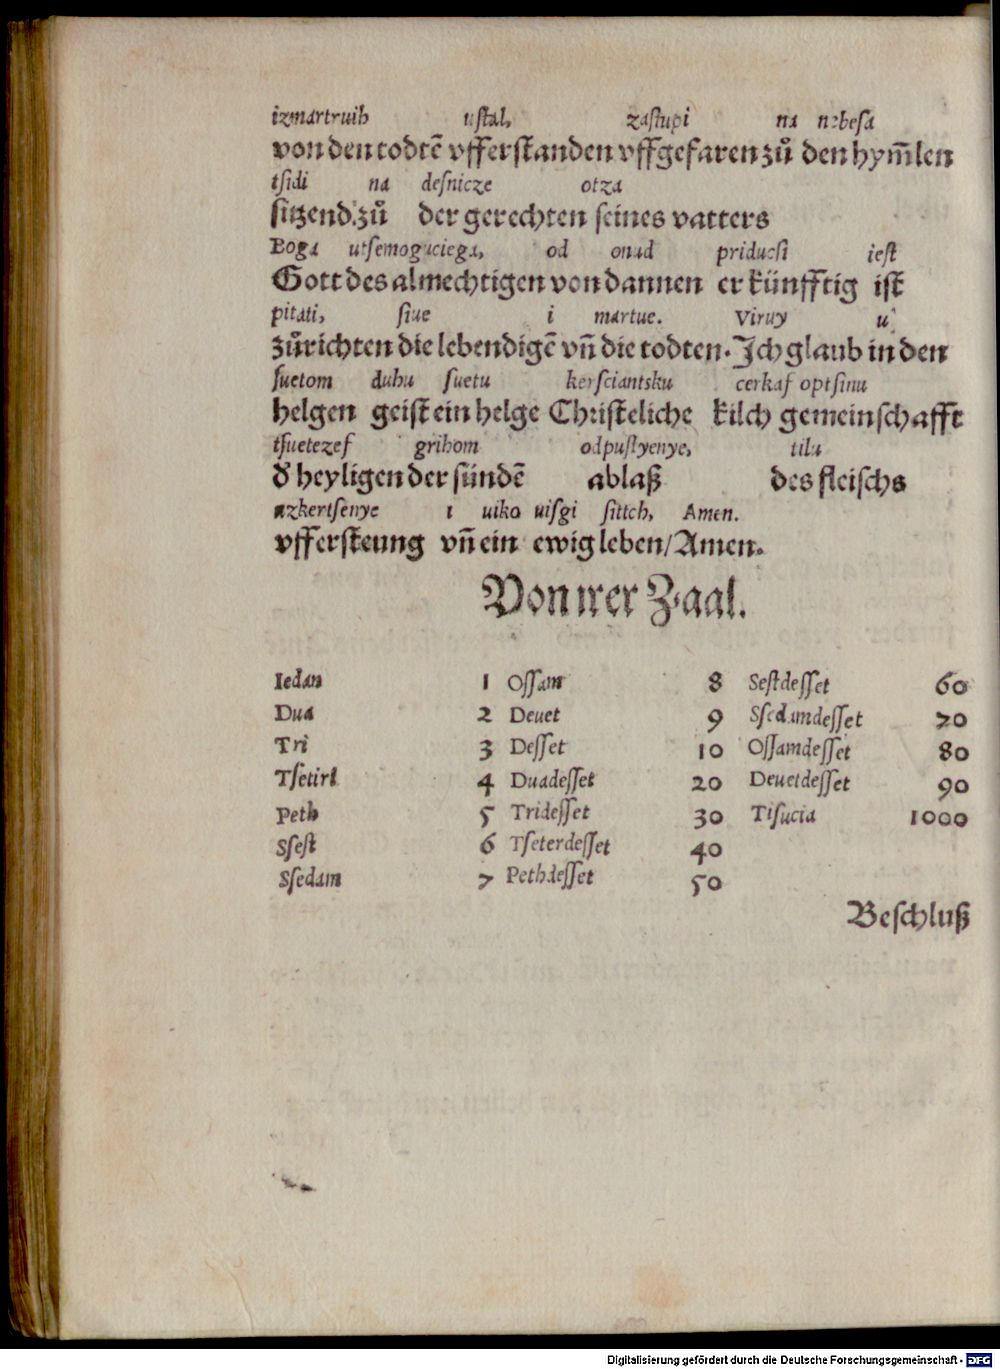 izmartruih uſtal, zaſtupi na nebeſa
von den todtē vfferſtanden vffgefaren zů den hym̄len
tſidi na deſnicze otza
ſitzend zů der gerechten ſeines vatters
Boga utſemoguciega, od onud priducſi ieſt
Gott des almechtigen von dannen er künfftig iſt
pitati, ſiue i martue. Viruy u
zůrichten die lebendigē vn̄ die todten. Ich glaub in den
ſuetom duhu ſuetu kerſciantsku cerkaf optſinu
helgen geiſt ein helge Chriſteliche kilch gemeinſchafft
tſuetezef grihom odpuſtyenye, tila
d' heyligen der ſündē ablaß des fleiſchs
uzkertſenye i uika uiſgi ſittch, Amen.
vfferſteung vn̄ ein ewig leben/Amen.
Von irer Zaal.
Iedan 1 Oſſam 8 Seſtdeſſet 60
Dua 2 Deuet 9 Sſedamdeſſet 70
Tri 3 Deſſet 10 Oſſamdeſſet 80
Tſetiri 4 Duadeſſet 20 Deuetdeſſet 90
Peth 5 Trideſſet 30 Tiſucia 1000
Sſeſt 6 Tſeterdeſſet 40
Sſedam 7 Pethdeſſet 50
Beſchluß
Digitalisierung gefördert durch die Deutsche Forschungsgemeinschaft - DFG